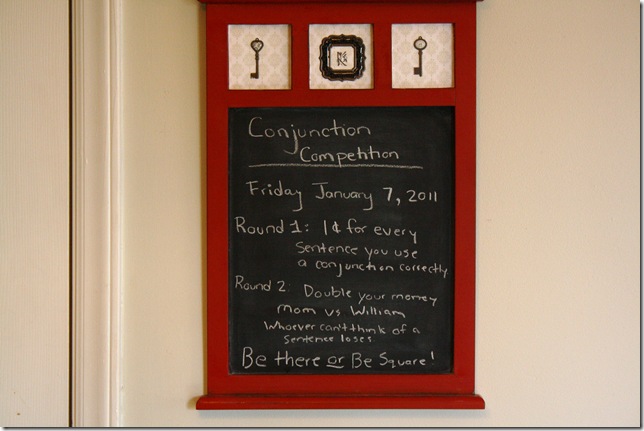 Conjunction
Competition
Friday January 7, 2011
Round 1: 1¢ for every
sentence you use
a conjunction correctly
Round 2: Double your money
Mom vs William
Whoever can't think of a
sentence loses.
Be there or Be Square!